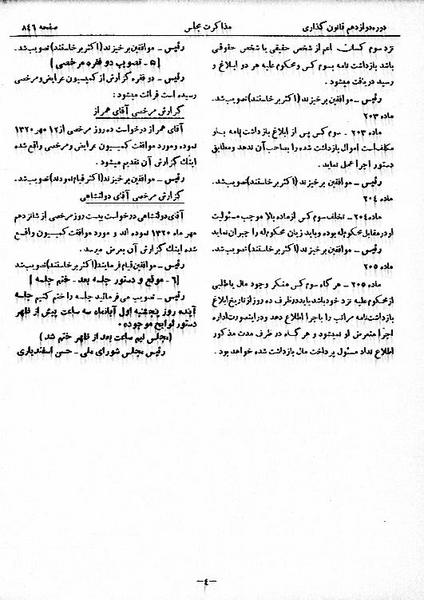 دوره دوازدهم قانون گذاری
مذاکرت مجلس
صفحه ۸۴۶
نزد سوم کسان اعم از شخص حقیقی یا شخص حقوقی
باشد بازداشت نامه بسوم کس ومحکوم علیه هر دو ابلاغ و
رسید دریافت میشود.
رئیس - موافقین برخیزند (اکثر برخاستند) تصویب شد.
ماده ۲۰۳
ماده ۲۰۳ - سوم کس پس از ابلاغ بازداشت نامه
مکلف است اموال بازداشت شده را بصاحب آن ندهد ومطابق
دستور اجرا عمل نماید.
رئیس - موافقین برخیزند (اکثر برخاستند) تصویب شد.
ماده ۲۰۴
ماده ۲۰۴ - تخلف سوم کس از ماده بالا موجب مسئولیت
او در مقابل محکوم له بوده و باید زیان محکوم له را جبران نماید
رئیس - موافقین برخیزند (اکثر برخاستند) تصویب شد.
ماده ۲۰۵
ماده ۲۰۵ - هرگاه سوم کس منکر وجود مال یا طلبی
از محکوم علیه نزد خود باشد باید در ظرف ده روز از تاریخ ابلاغ
بازداشت نامه مراتب را باجرا اطلاع دهد و در اینصورت اداره
اجرا متعرض او نمیشود و هرگاه در ظرف مدت مذکور
اطلاع نداد مسئول پرداخت مال بازداشت شده خواهد بود.
رئیس - موافقین برخیزند (اکثر برخاستند) تصویب شد.
[۵ - تصویب دو فقره مرخصی]
رئیس - دو فقره گزارش از کمیسیون عرایض ومرخصی
رسیده است قرائت میشود:
گزارش مرخصی آقای همراز
آقای همراز درخواست ده روز مرخصی از ۱۲ مهر ۱۳۲۰
نموده ومورد موافقت کمیسیون عرایض ومرخصی واقع شده
اینک گزارش آن تقدیم میشود.
رئیس - موافقین برخیزند (اکثر قیام نمودند) تصویب شد.
گزارش مرخصی آقای دولتشاهی
آقای دولتشاهی درخواست بیست روز مرخصی از شانزدهم
مهر ماه ۱۳۲۰ نموده اند و مورد موافقت کمیسیون واقع
شده اینک گزارش آن بعرض میرسد.
رئیس - موافقین قیام فرمایند (اکثر برخاستند) تصویب شد
[۶ - موقع و دستور جلسه بعد - ختم جلسه]
رئیس - تصویب می فرمائید جلسه را ختم کنیم جلسه
آینده روز پنجشنبه اول آبانماه سه ساعت پیش از ظهر
دستور لوایح موجوده.
(مجلس نیم ساعت بعد از ظهر ختم شد)
رئیس مجلس شورای ملی - حسن اسفندیاری
-۴-